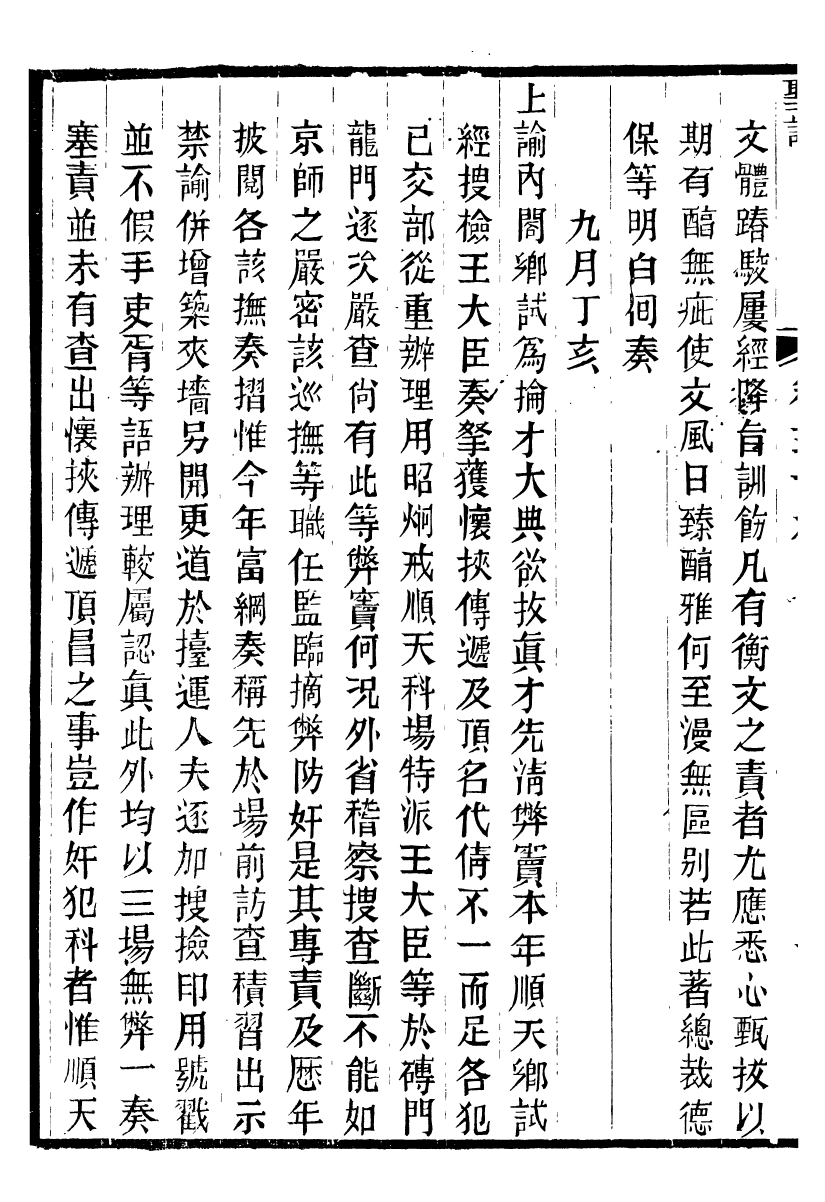 聖訓
文體踳駁屢經降旨訓飭凡有衡文之責者尤應悉心甄拔以
期有醕無疵使文風日臻醕雅何至漫無區別若此著總裁德
保等明白囘奏
九月丁亥
上諭內閣鄉試爲掄才大典欲拔眞才先淸弊竇本年順天鄉試
經搜檢王大臣奏拏獲懷挾傳遞及頂名代倩不一而足各犯
已交部從重辦理用昭炯戒順天科場特派王大臣等於磚門
龍門逐次嚴查尙有此等弊竇何況外省稽察搜查斷不能如
京師之嚴密該巡撫等職任監臨摘弊防奸是其專責及歷年
披閱各該撫奏摺惟今年富綱奏稱先於場前訪查積習出示
禁諭併增築夾墻另開更道於擡運人夫逐加搜撿印用號戳
並不假手吏胥等語辦理較屬認眞此外均以三場無弊一奏
塞責並未有查出懷挾傳遞頂冒之事豈作奸犯科者惟順天